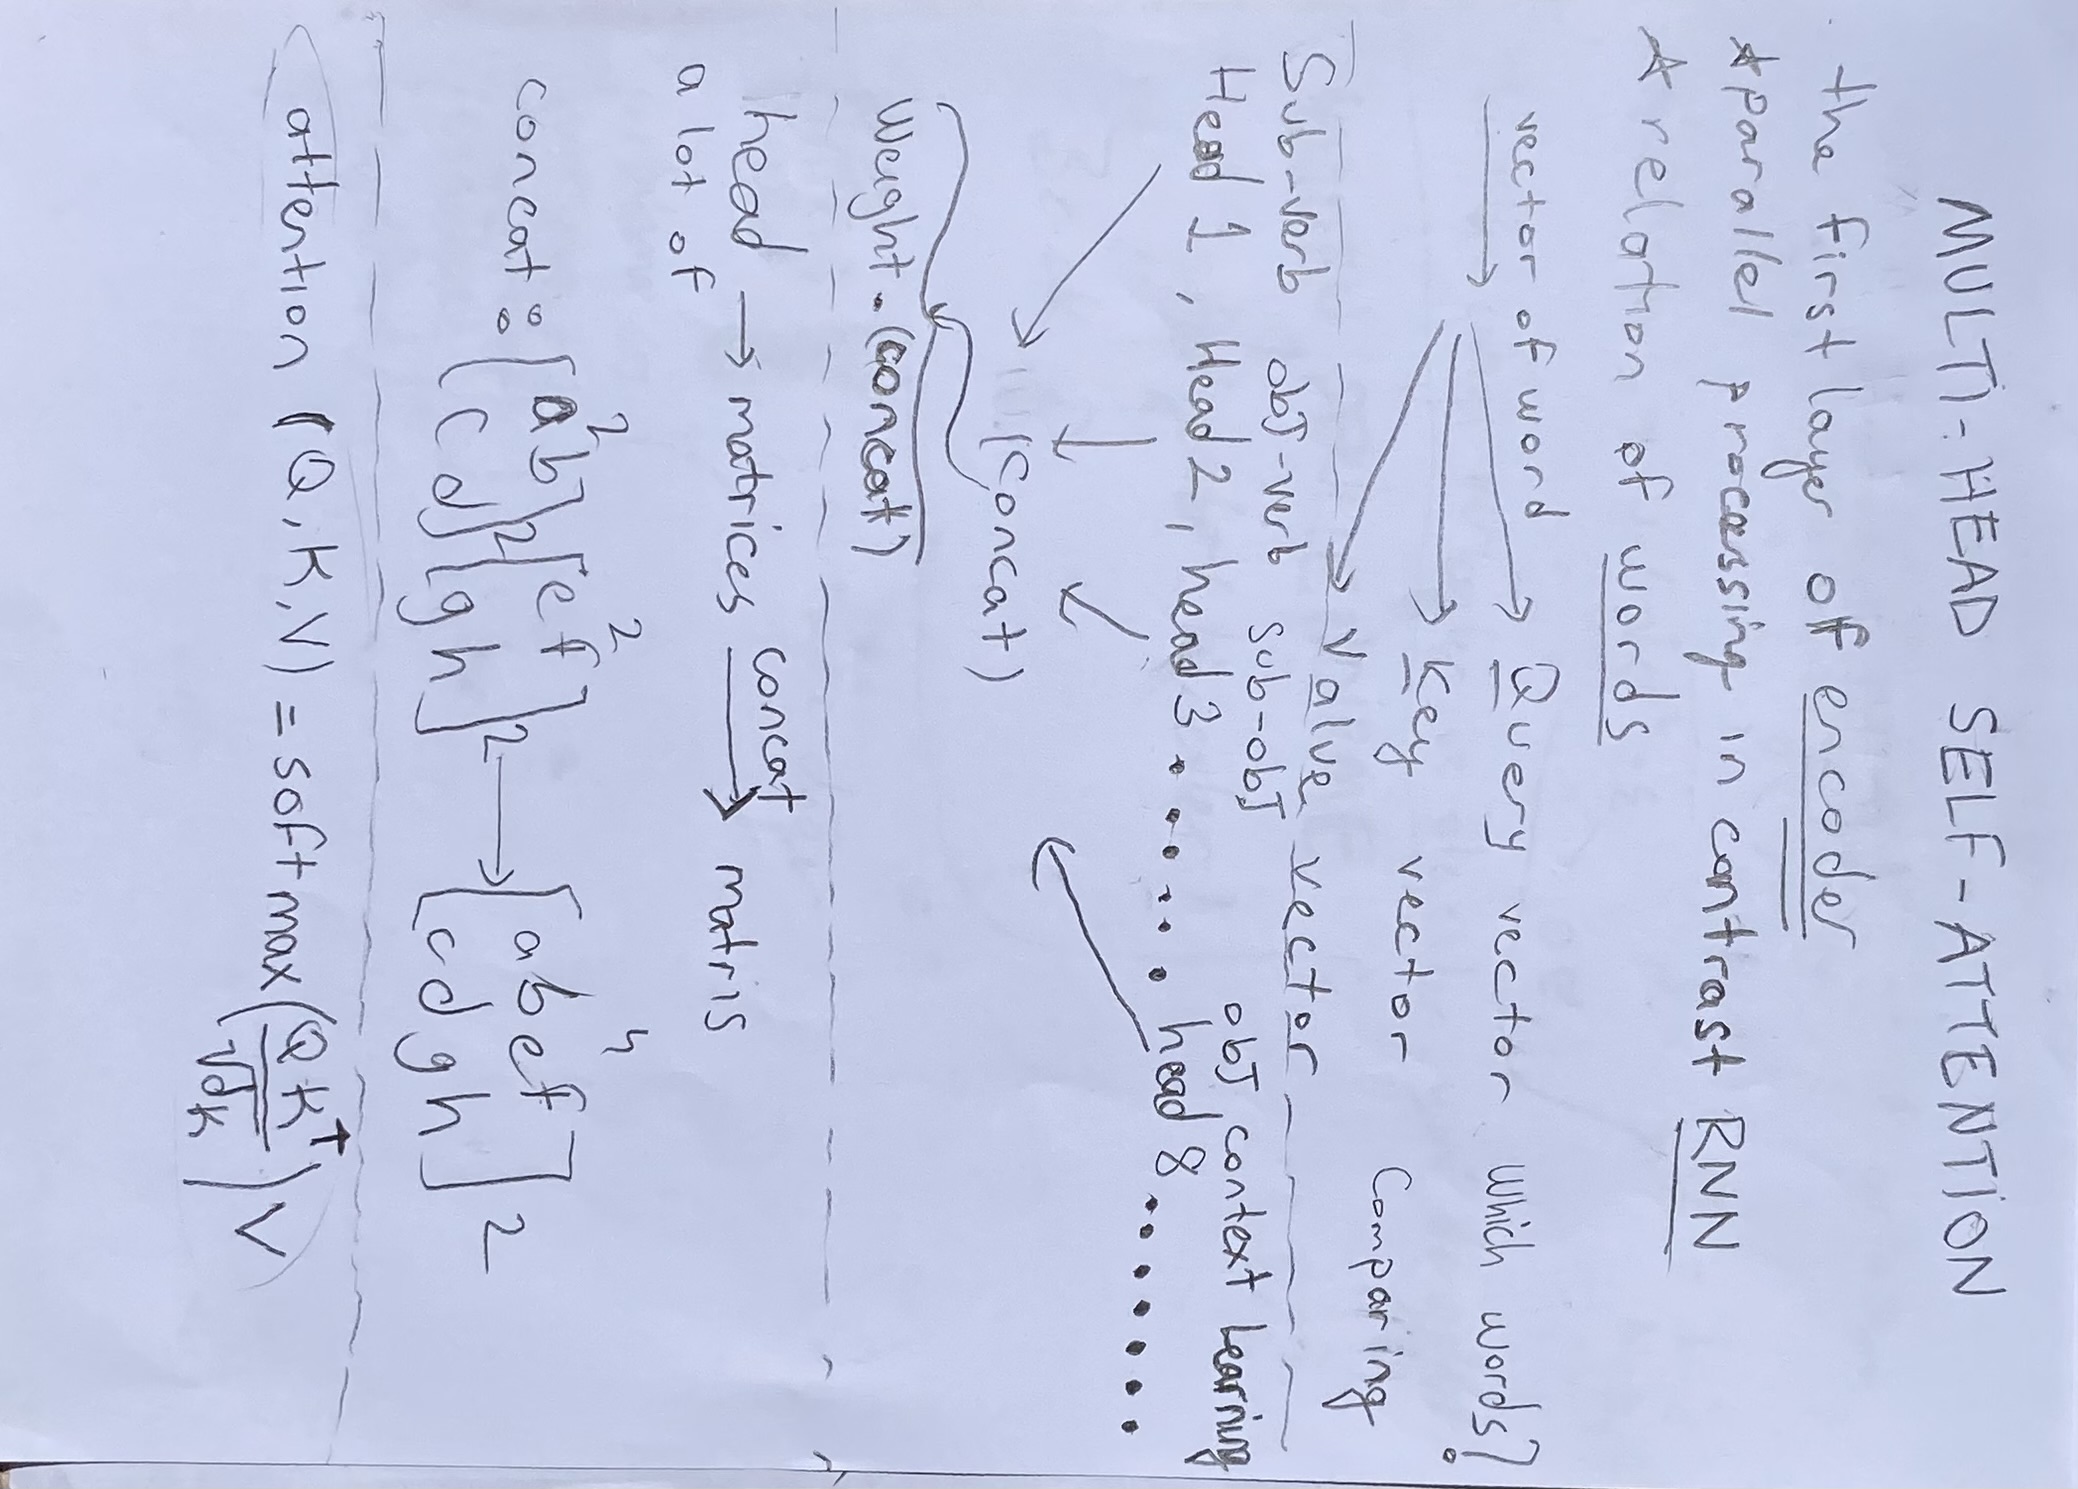 MULTI-HEAD SELF-ATTENTION
the first layer of encoder
parallel processing in contrast RNN
relation of words
vector of word → Query vector Which words?
Key vector Comparing
Value vector
Sub-verb obJ-verb Sub-obJ obJ context Learning
Head 1, Head 2, head 3 ...... head 8 .......
(Concat)
Weight . (concat)
head → matrices concat → matris
a lot of
concat: [a b]² [e f]² → [a b e f]⁴
[c d]₂ [g h]₂ [c d g h] 2
attention (Q, K, V) = softmax(QKᵀ/√dk) V